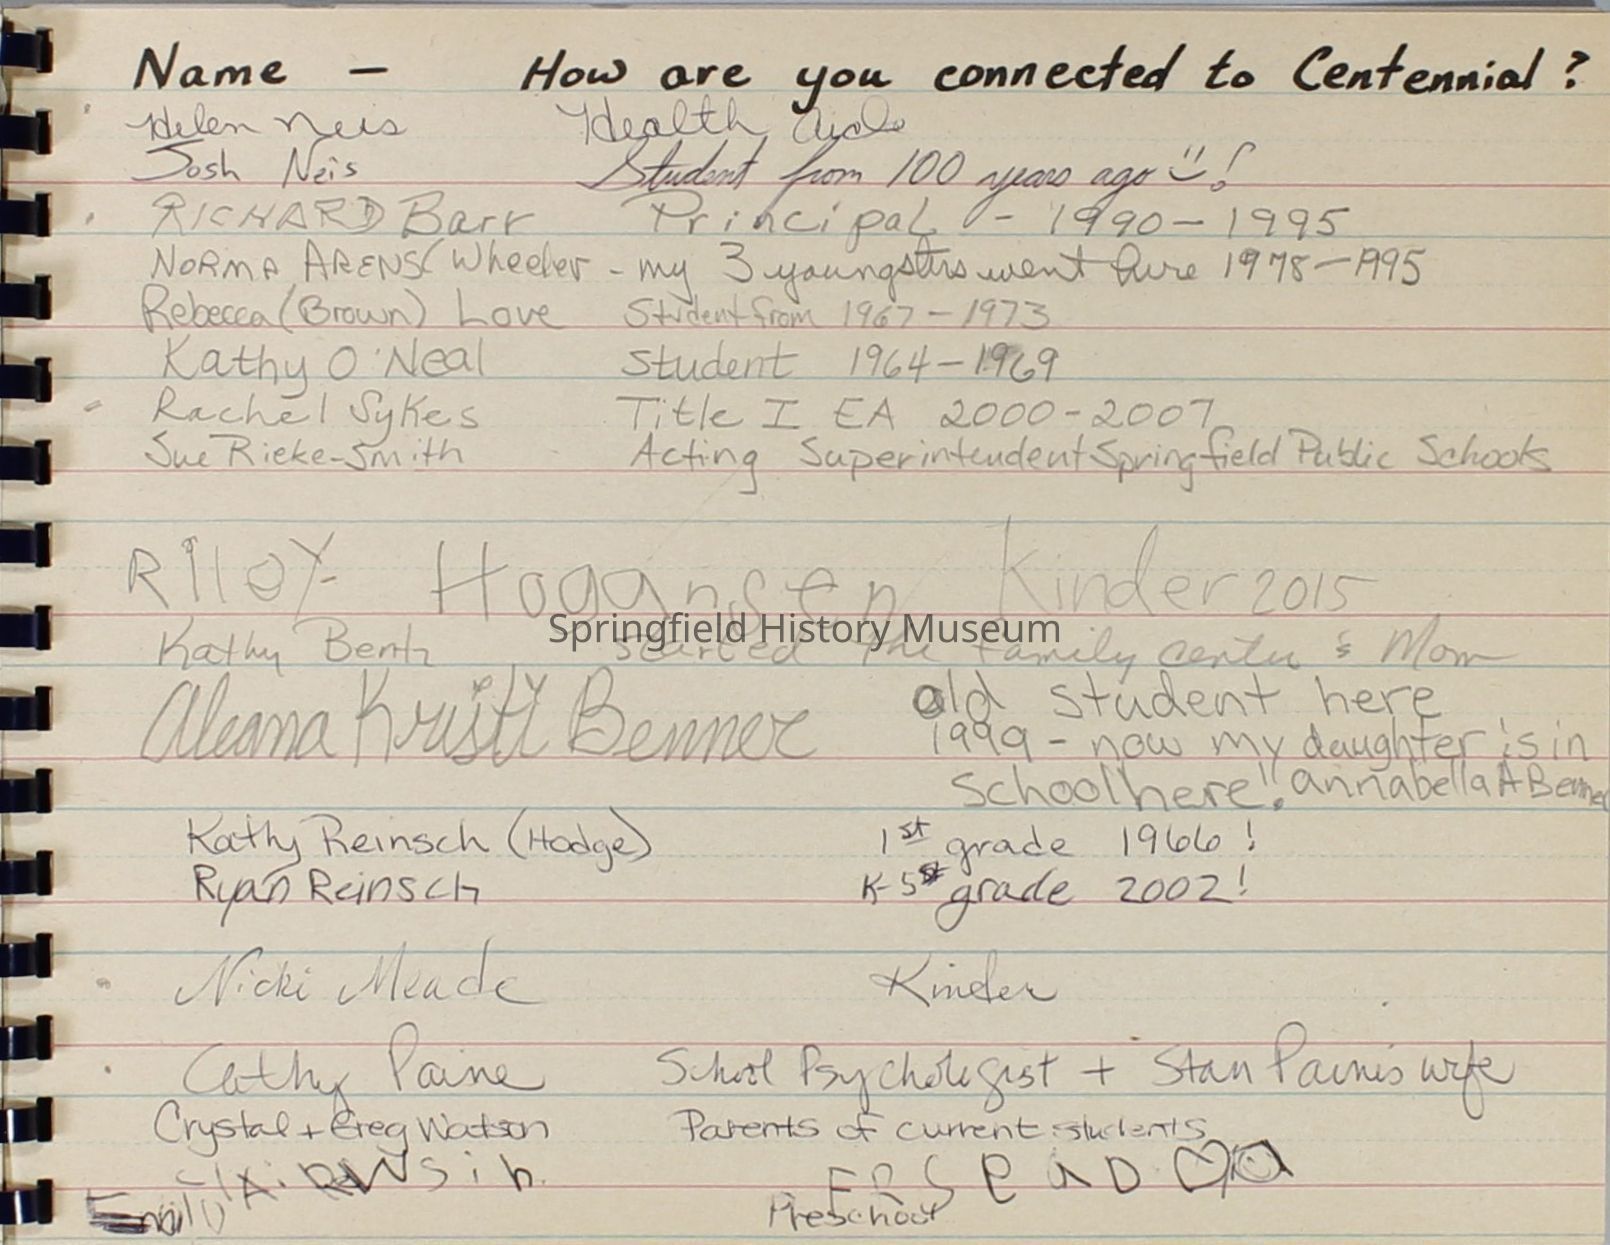 Name - How are you connected to Centennial ?
Helen Neis Health Aide
Josh Neis Student from 100 years ago !
RICHARD Barr Principal - 1990-1995
NORMA ARENS (Wheeler - my 3 youngsters went here 1978-1995
Rebecca (Brown) Love Student from 1967-1973
Kathy O'Neal Student 1964-1969
Rachel Sykes Title I EA 2000-2007
Sue Rieke-Smith Acting Superintendent Springfield Public Schools
Riley Hogansen Kinder 2015
Springfield History Museum
Kathy Bentz Started the Family Center & Mom
Aleana Kristi Benner old student here
1999 - now my daughter is in
School here!! annabella A Benner
Kathy Reinsch (Hodge) 1st grade 1966 !
Ryan Reinsch K-5 grade 2002!
Nicki Meade Kinder
Cathy Paine School Psychologist + Stan Paine's wife
Crystal + Greg Watson Parents of current students
Preschool